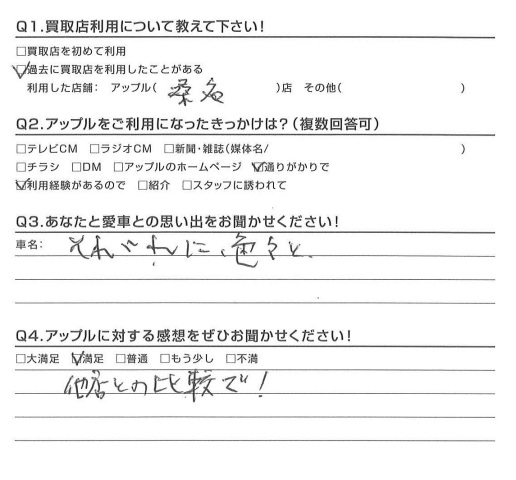 Q1.買取店利用について教えて下さい!
□買取店を初めて利用
☑過去に買取店を利用したことがある
利用した店舗: アップル( 桑名 )店 その他( )
Q2.アップルをご利用になったきっかけは?(複数回答可)
□テレビCM □ラジオCM □新聞・雑誌(媒体名/ )
□チラシ □DM □アップルのホームページ ☑通りがかりで
☑利用経験があるので □紹介 □スタッフに誘われて
Q3.あなたと愛車との思い出をお聞かせください!
車名: それぞれに、色々と、
Q4.アップルに対する感想をぜひお聞かせください!
□大満足 ☑満足 □普通 □もう少し □不満
他店との比較で!